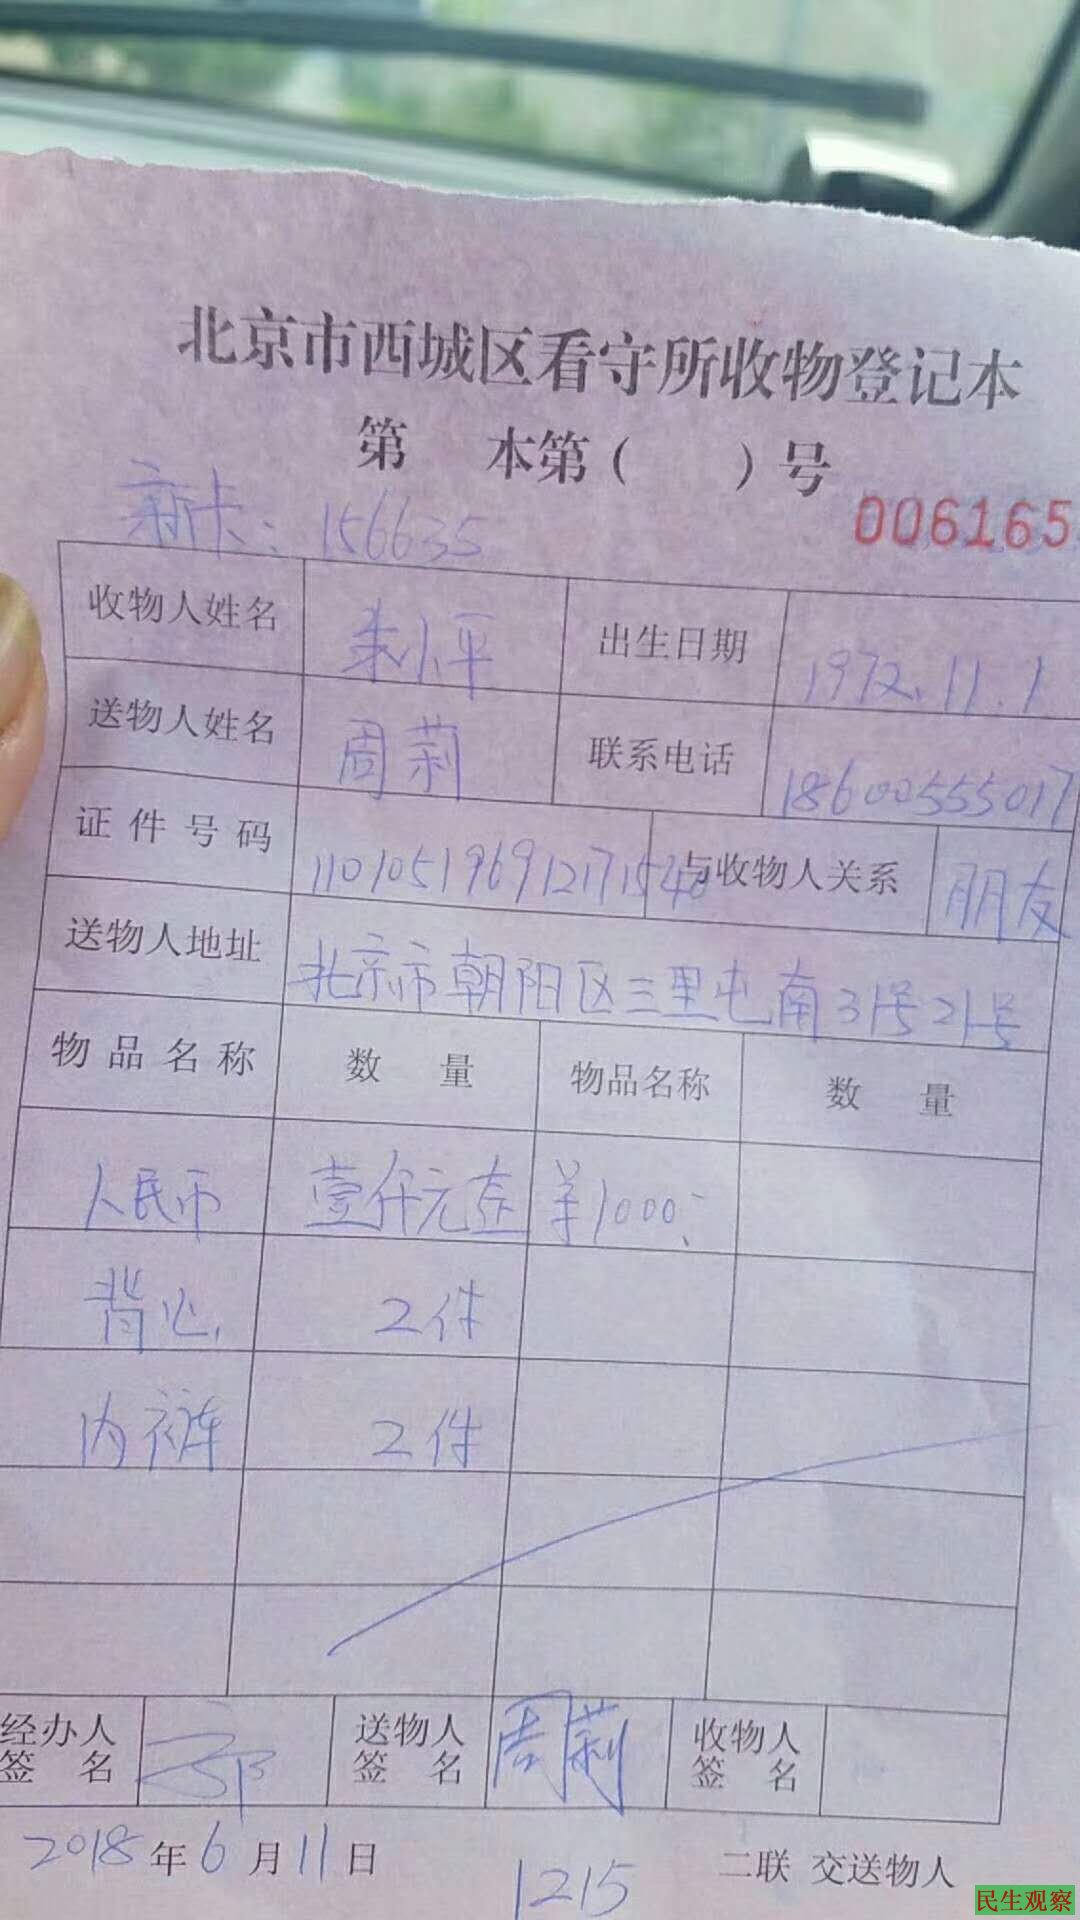 北京市西城区看守所收物登记本
第 本第( )号
新卡：156635
006165
收物人姓名 朱小平 出生日期 1972.11.1
送物人姓名 周莉 联系电话 18600555017
证件号码 110105196912171540 与收物人关系 朋友
送物人地址 北京市朝阳区三里屯南31号21号
物品名称 数 量 物品名称 数 量
人民币 壹仟元 ¥1000
背心 2件
内裤 2件
经办人签名 送物人签名 周莉 收物人签名
2018年6月11日
1215
二联 交送物人
民生观察